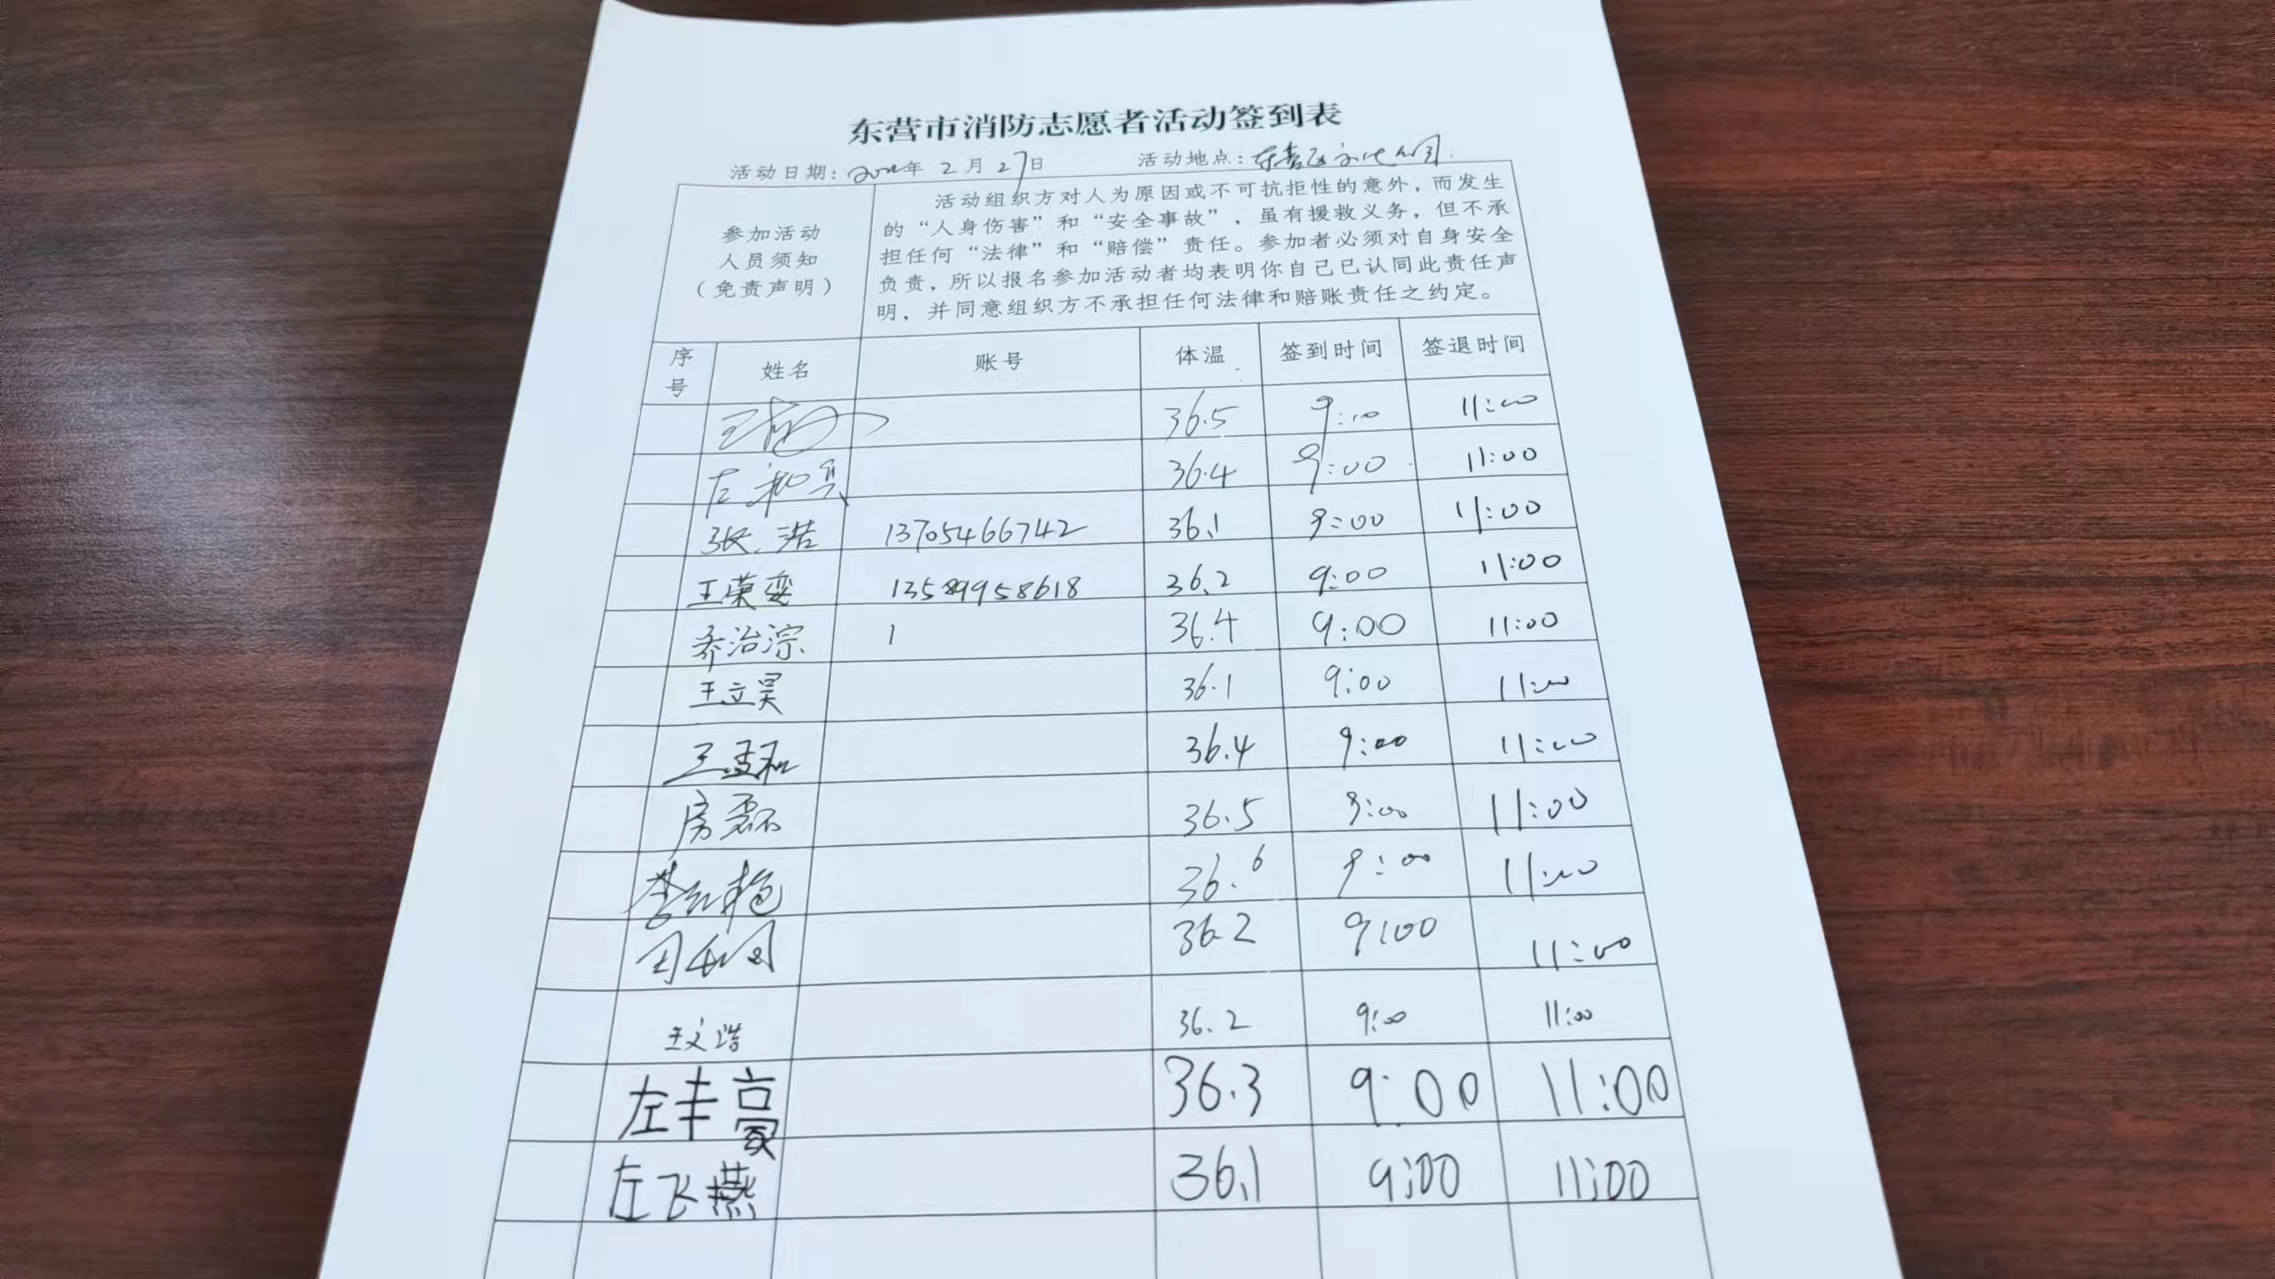 东营市消防志愿者活动签到表
活动日期: 年 2 月 27 日 活动地点:
参加活动
人员须知
(免责声明)
活动组织方对人为原因或不可抗拒性的意外，而发生
的“人身伤害”和“安全事故”，虽有援救义务，但不承
担任何“法律”和“赔偿”责任。参加者必须对自身安全
负责，所以报名参加活动者均表明你自己已认同此责任声
明，并同意组织方不承担任何法律和赔账责任之约定。
序号 姓名 账号 体温 签到时间 签退时间
36.5 9:00 11:00
左 36.4 9:00 11:00
张浩 13705466742 36.1 9:00 11:00
王荣娈 13589958618 36.2 9:00 11:00
乔治淙 1 36.4 9:00 11:00
王立昊 36.1 9:00 11:00
王孟和 36.4 9:00 11:00
房磊 36.5 9:00 11:00
李红艳 36.6 9:00 11:00
36.2 9:00 11:00
王文浩 36.2 9:00 11:00
左丰豪 36.3 9:00 11:00
左飞燕 36.1 9:00 11:00